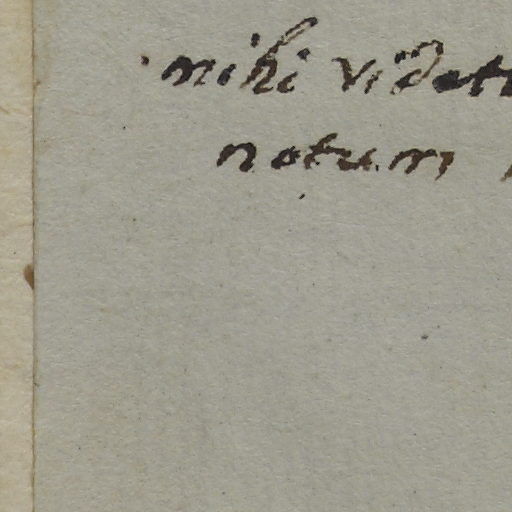 mihi videt
notum